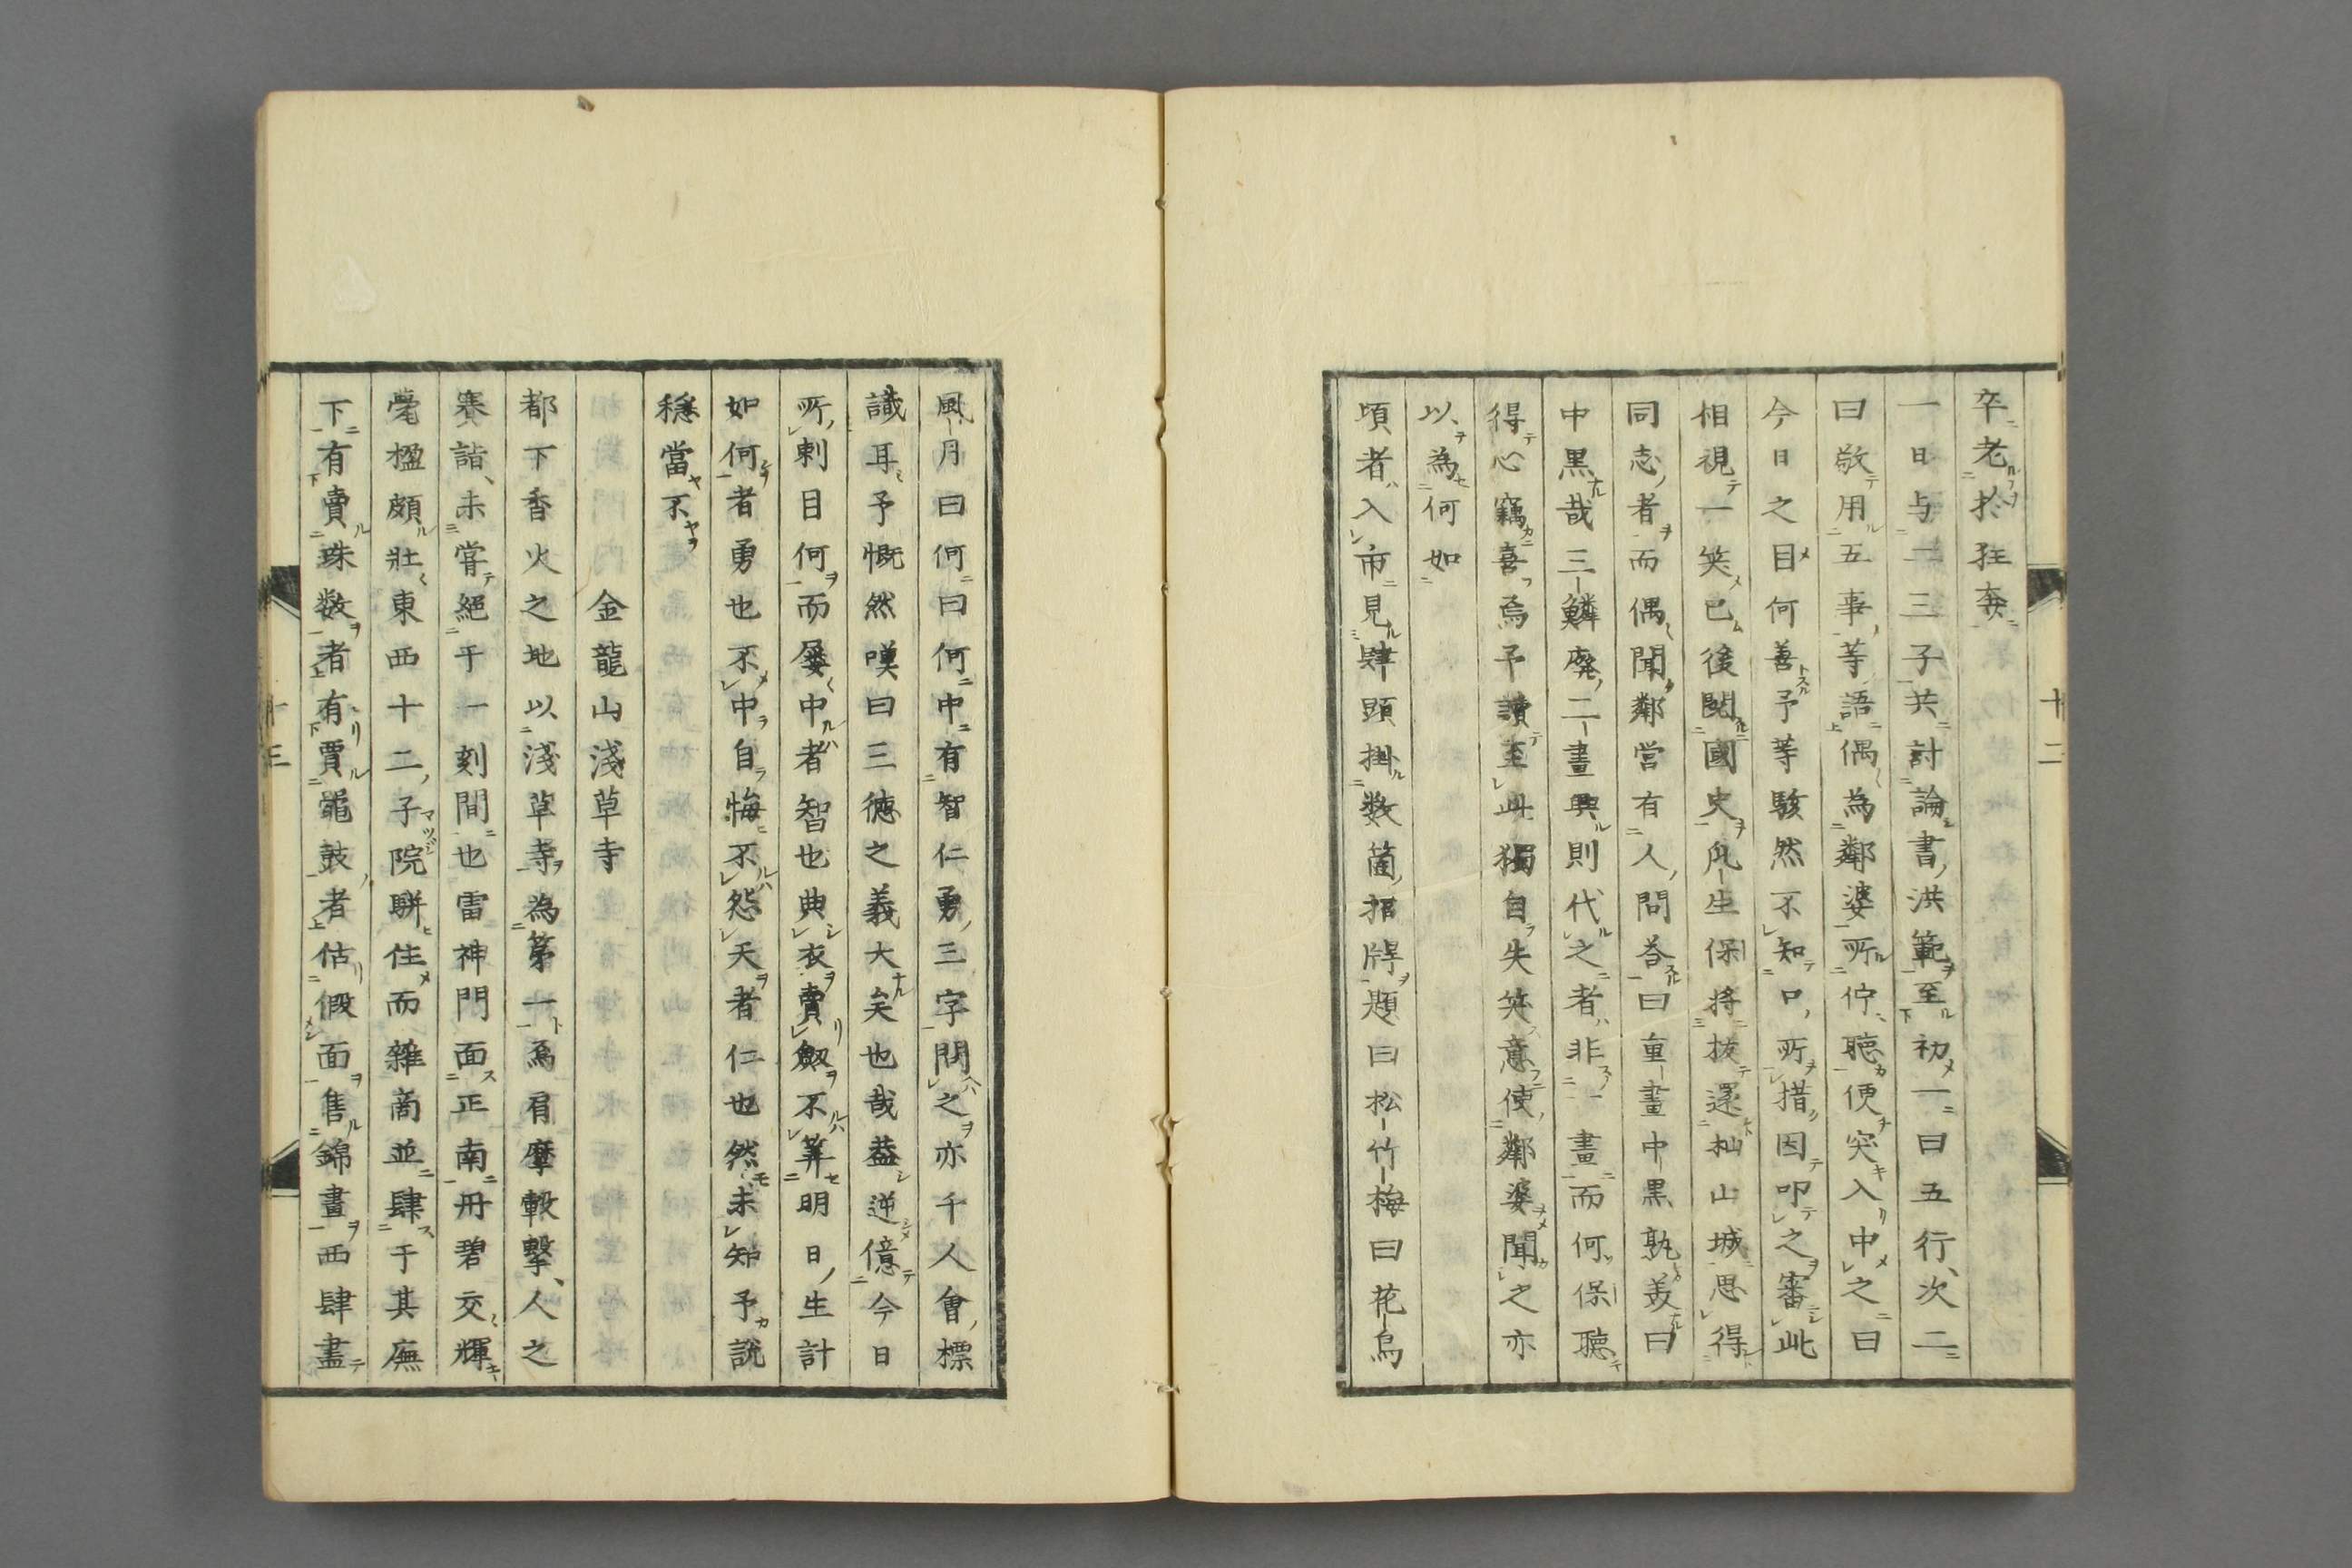 卒老於狂奔
一日与二三子共討論書洪範至初一曰五行次二
曰敬用五事等語偶為鄰婆所佇聽便突入中之曰
今日之目何善予等駭然不知口所措因叩之審此
相視一笑已後閱國史凡生保將拔還杣山城思得
同志者而偶聞鄰営有人問荅曰重畫中黒孰美曰
中黒哉三鱗廃二畫興則代之者非一畫而何保聽
得心竊喜焉予讀至此獨自失笑意使鄰婆聞之亦
以為何如
頃者入市見肆頭掛数箇招牌題曰松竹梅曰花鳥
十二
風月曰何曰何中有智仁勇三字問之亦千人會標
識耳予慨然嘆曰三徳之義大矣也哉葢逆億今日
所剌目何而屡中者智也典衣賣劔不筭明日生計
如何者勇也不中自悔不怨天者仁也然未知予説
穏當不
金龍山淺草寺
都下香火之地以淺草寺為第一焉肩摩轂撃人之
賽詣未甞絕于一刻間也雷神門面正南丹碧交輝
甍楹頗壯東西十二子院駢住而雜商並肆于其廡
下有賣珠数者有賈鼗鼓者估假面售錦畫西肆盡
十三